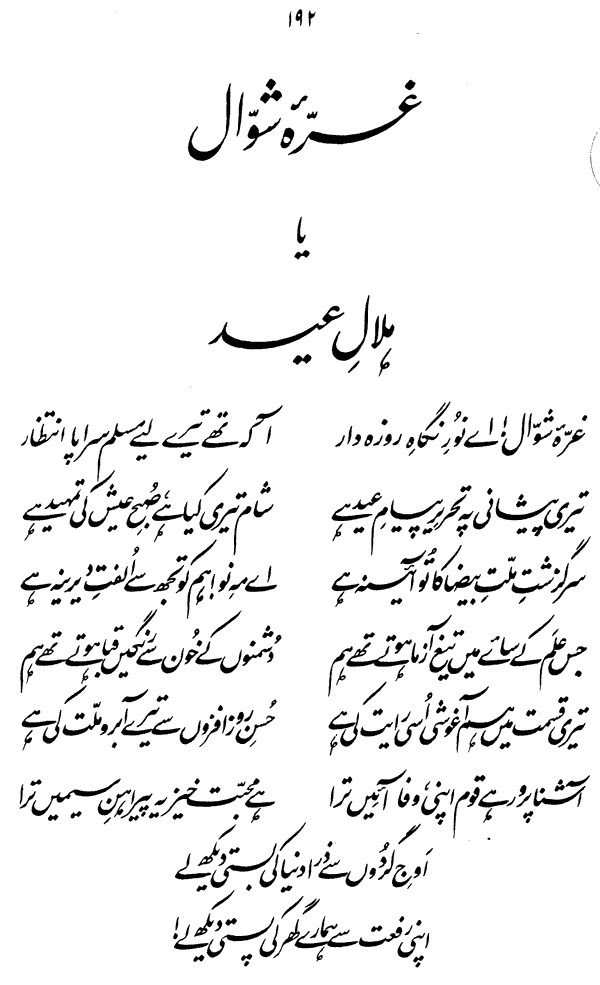 ۱۹۲
غرّۂ شوّال
یا
ہلالِ عید
غرّۂ شوّال! اے نُورِ نگاہِ روزہ دار آ کہ تھے تیرے لیے مسلم سراپا انتظار
تیری پیشانی پہ تحریرِ پیامِ عید ہے شام تیری کیا ہے، صُبحِ عیش کی تمہید ہے
سرگزشتِ ملّتِ بیضا کا تُو آئینہ ہے اے مہِ نو! ہم کو تجھ سے اُلفتِ دیرینہ ہے
جس علَم کے سائے میں تیغ آزما ہوتے تھے ہم دُشمنوں کے خُون سے رنگیں قبا ہوتے تھے ہم
تیری قسمت میں ہم آغوشی اُسی رایت کی ہے حُسنِ روز افزوں سے تیرے آبرو ملّت کی ہے
آشنا پرور ہے قوم اپنی، وفا آئیں ترا ہے محبّت خیز یہ پیراہنِ سیمیں ترا
اَوجِ گردُوں سے ذرا دنیا کی بستی دیکھ لے
اپنی رفعت سے ہمارے گھر کی پستی دیکھ لے!